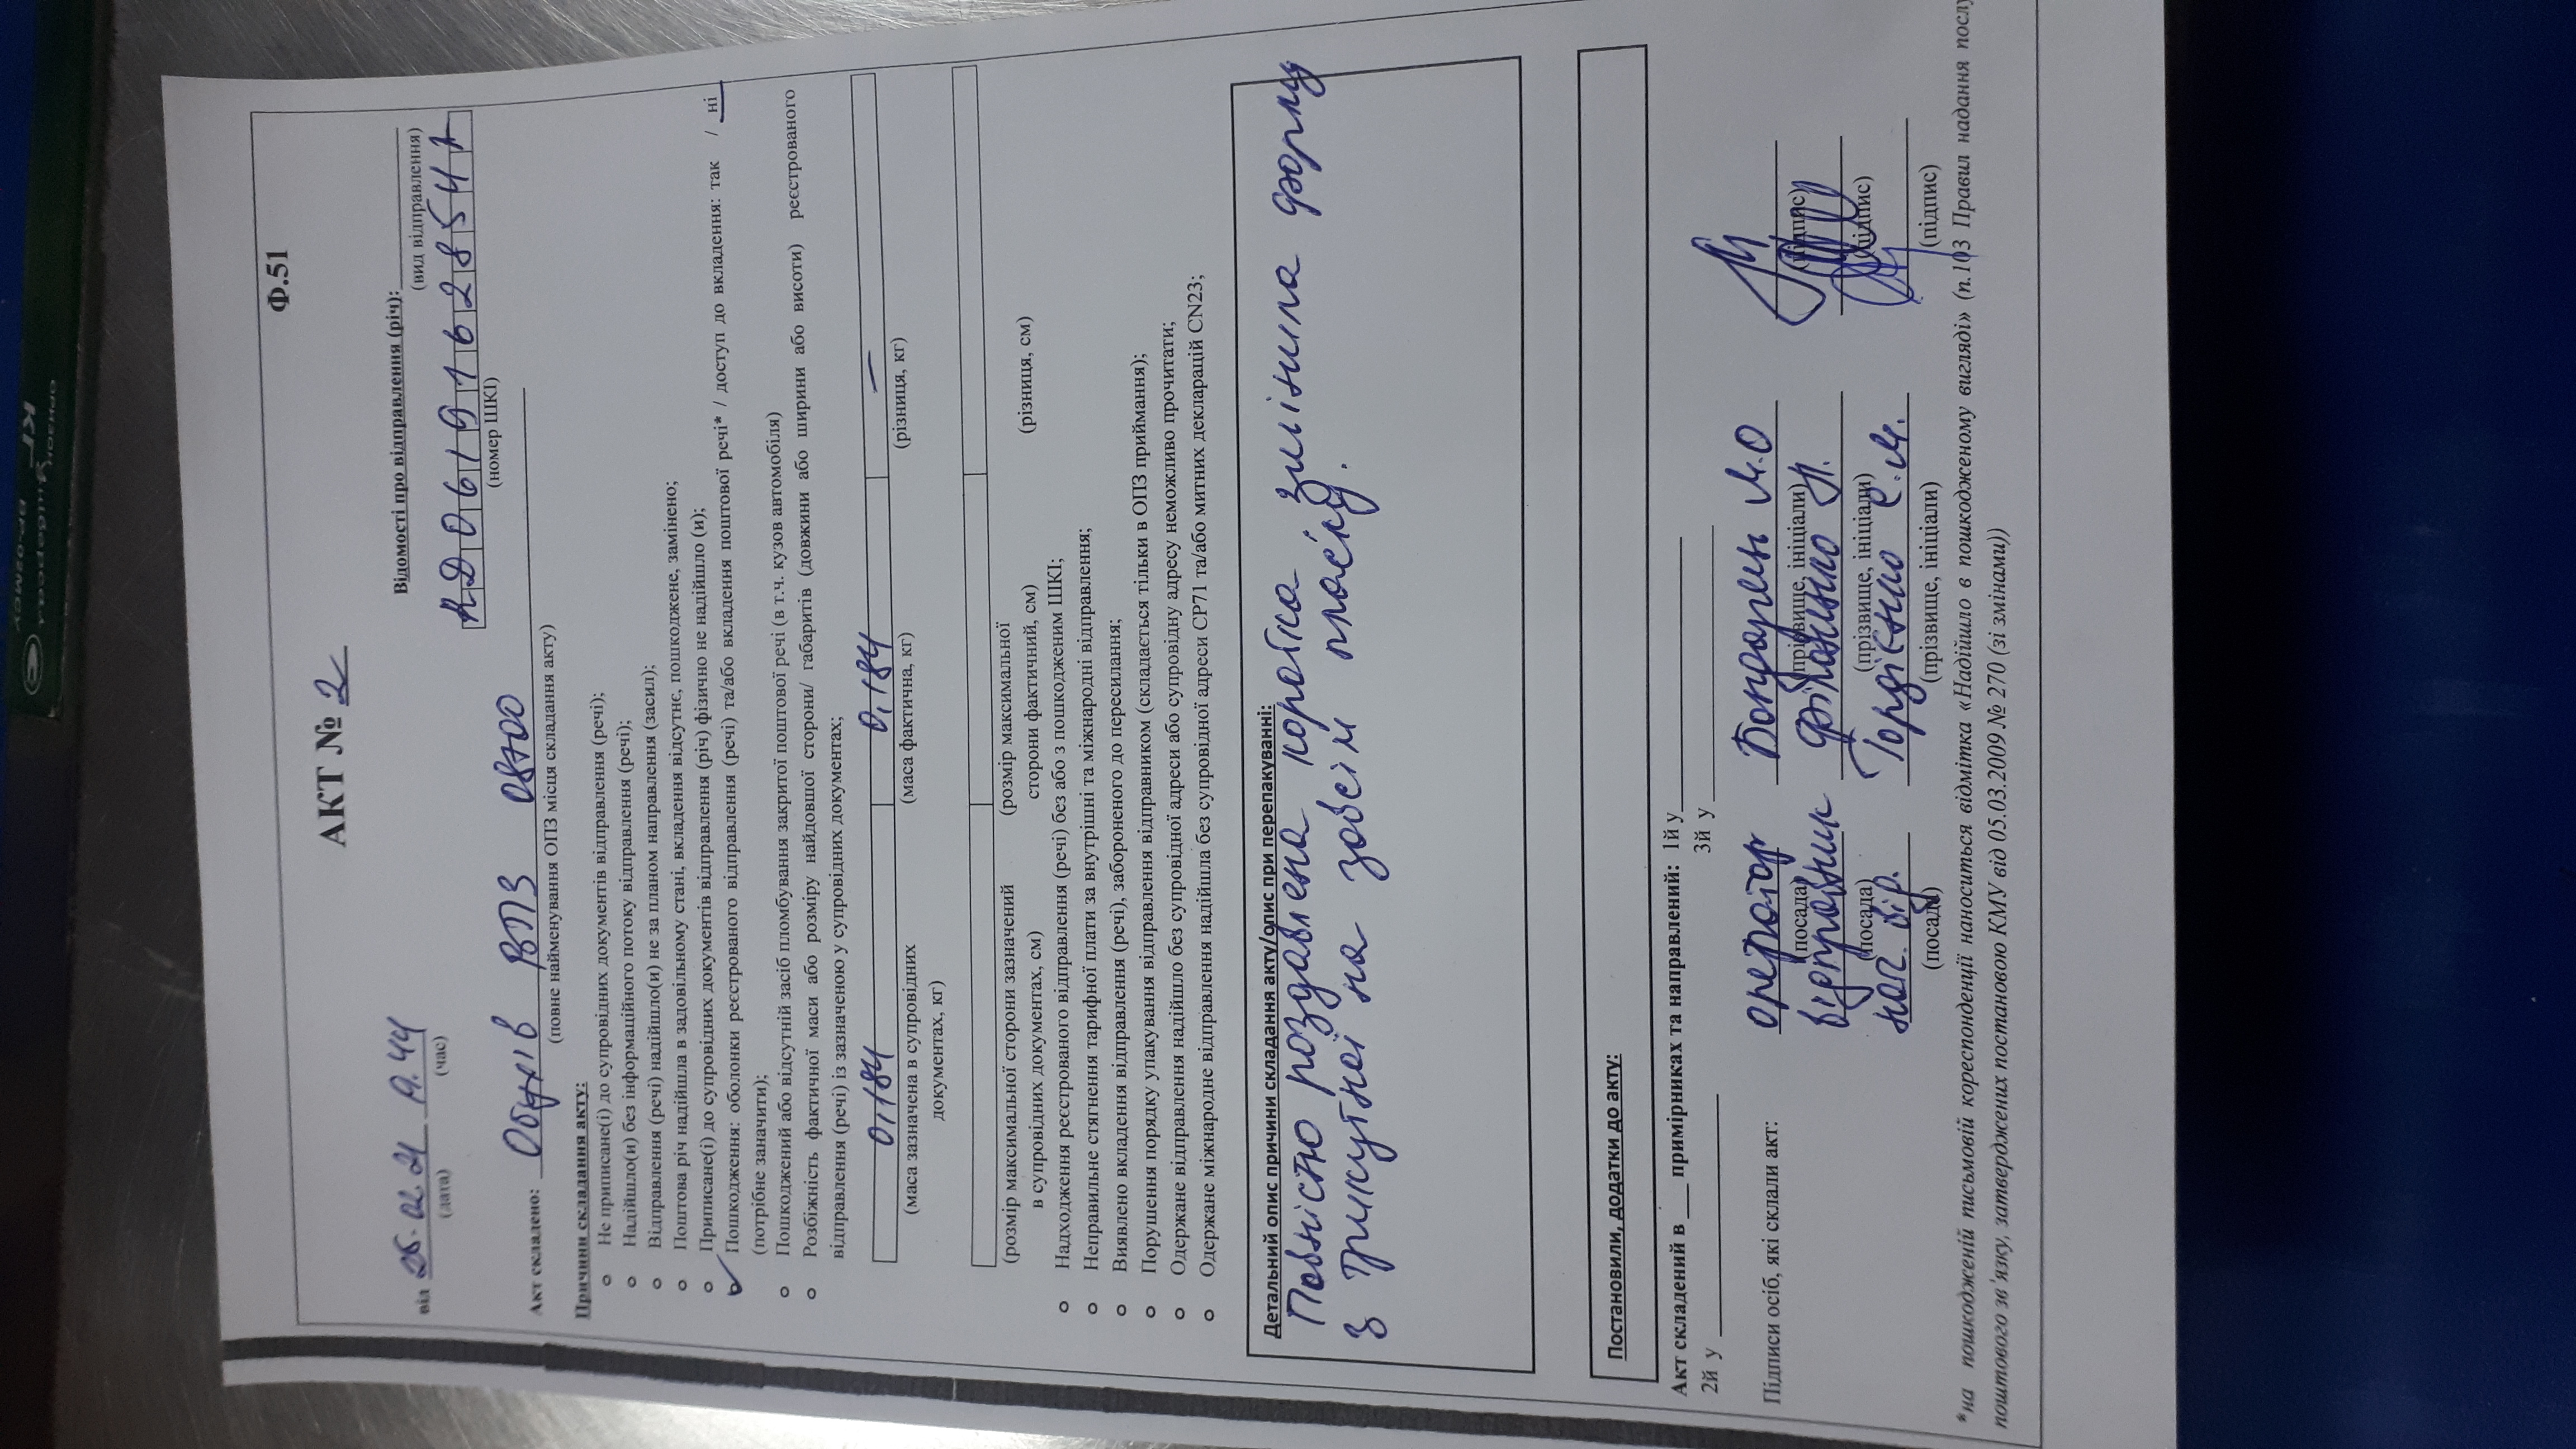 Ф.51
АКТ № 2
від 25.02.21
(дата) (час)
Відомості про відправлення (річ):
(вид відправлення)
(номер ШКІ)
Акт складено: Обухів ВПЗ 08700
(повне найменування ОПЗ місця складання акту)
Причини складання акту:
о Не приписане(і) до супровідних документів відправлення (речі);
о Надійшло(и) без інформаційного потоку відправлення (речі);
о Відправлення (речі) надійшло(и) не за планом направлення (засил);
о Поштова річ надійшла в задовільному стані, вкладення відсутнє, пошкоджене, замінено;
о Приписане(і) до супровідних документів відправлення (річ) фізично не надійшло (и);
Пошкодження: оболонки реєстрованого відправлення (речі) та/або вкладення поштової речі* / доступ до вкладення: так / ні
(потрібне заначити);
о Пошкоджений або відсутній засіб пломбування закритої поштової речі (в т.ч. кузов автомобіля)
о Розбіжність фактичної маси або розміру найдовшої сторони/ габаритів (довжини або ширини або висоти) реєстрованого
відправлення (речі) із зазначеною у супровідних документах;
0,184 0,184 —
(маса зазначена в супровідних (маса фактична, кг) (різниця, кг)
документах, кг)
(розмір максимальної сторони зазначений (розмір максимальної
в супровідних документах, см) сторони фактичний, см) (різниця, см)
о Надходження реєстрованого відправлення (речі) без або з пошкодженим ШКІ;
о Неправильне стягнення тарифної плати за внутрішні та міжнародні відправлення;
о Виявлено вкладення відправлення (речі), забороненого до пересилання;
о Порушення порядку упакування відправлення відправником (складається тільки в ОПЗ приймання);
о Одержане відправлення надійшло без супровідної адреси або супровідну адресу неможливо прочитати;
о Одержане міжнародне відправлення надійшла без супровідної адреси СР71 та/або митних декларацій CN23;
Детальний опис причини складання акту/опис при перепакуванні:
Повністю роздавлена коробка, змінила форму
з трикутної на зовсім плоску.
Постановили, додатки до акту:
Акт складений в ___ примірниках та направлений: 1й у
2й у 3й у
Підписи осіб, які склали акт: оператор М.О
(посада) (прізвище, ініціали) (підпис)
відправник
(посада) (прізвище, ініціали) (підпис)
нач. від. Гордієнко Є.М.
(посада) (прізвище, ініціали) (підпис)
*на пошкодженій письмовій кореспонденції наноситься відмітка «Надійшло в пошкодженому вигляді» (п.103 Правил надання послу
поштового зв'язку, затверджених постановою КМУ від 05.03.2009 № 270 (зі змінами))